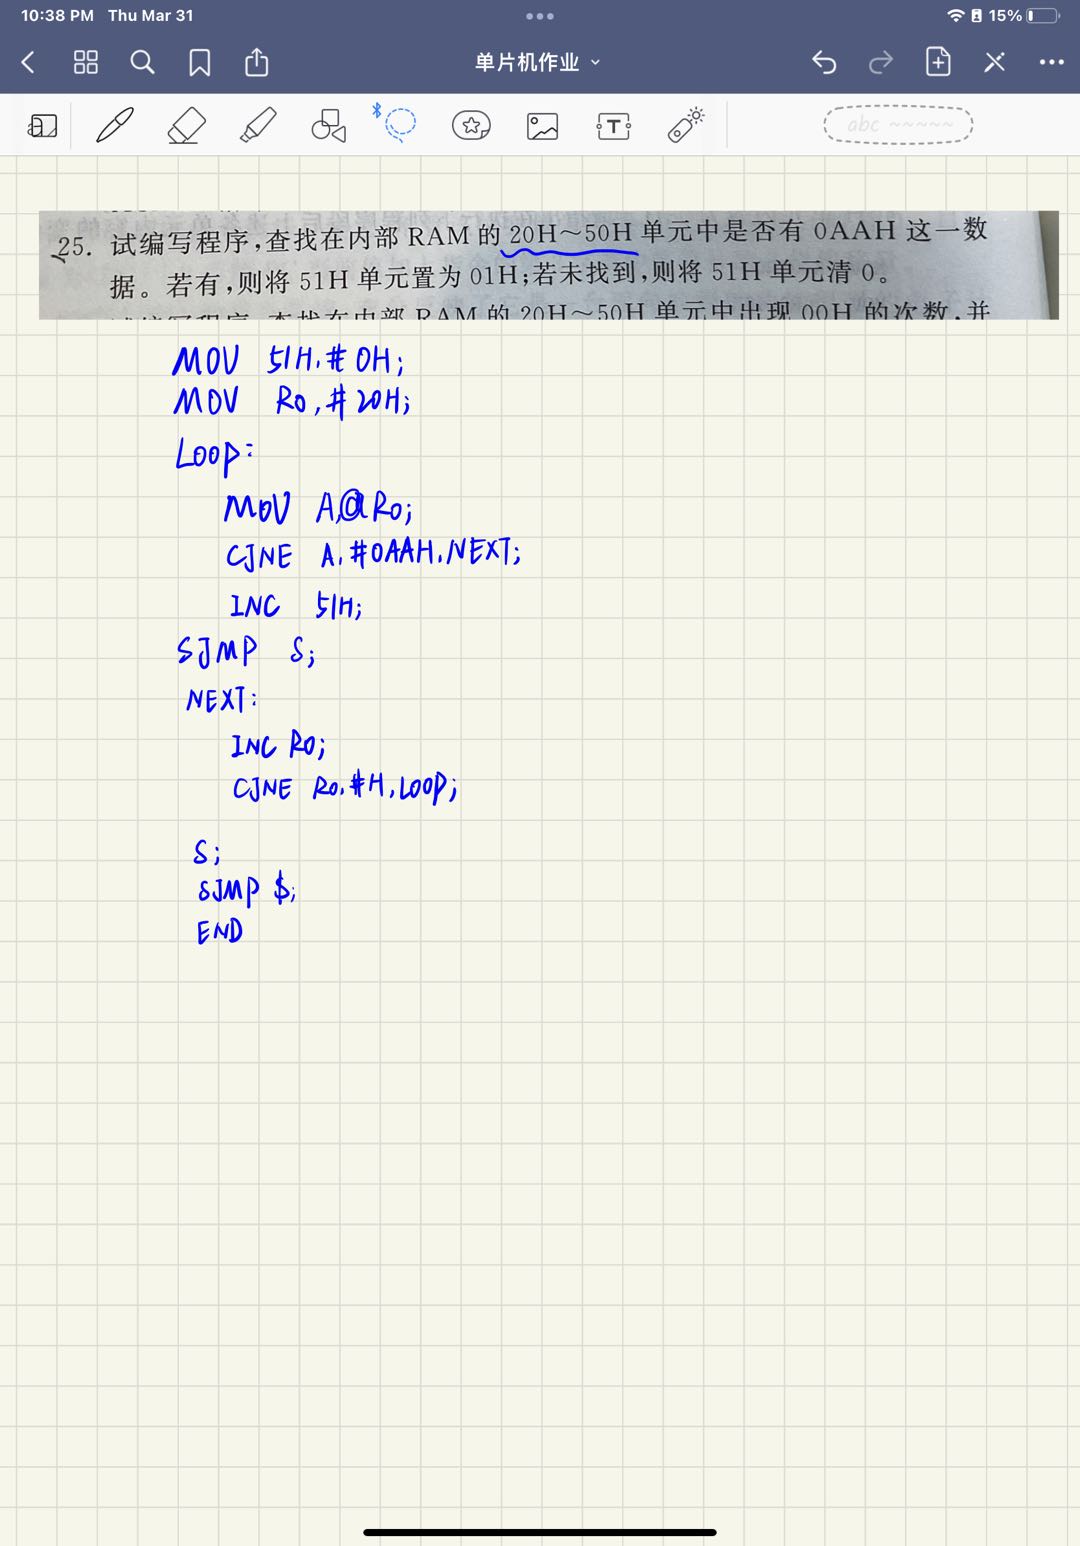 10:38 PM Thu Mar 31 15%
单片机作业
abc
25. 试编写程序,查找在内部 RAM 的 20H～50H 单元中是否有 0AAH 这一数
据。若有,则将 51H 单元置为 01H;若未找到,则将 51H 单元清 0。
试编写程序,查找在内部 RAM 的 20H～50H 单元中出现 00H 的次数,并
MOV 51H,#0H;
MOV R0,#20H;
LOOP:
MOV A,@R0;
CJNE A,#0AAH,NEXT;
INC 51H;
SJMP S;
NEXT:
INC R0;
CJNE R0,#H,LOOP;
S;
SJMP $;
END